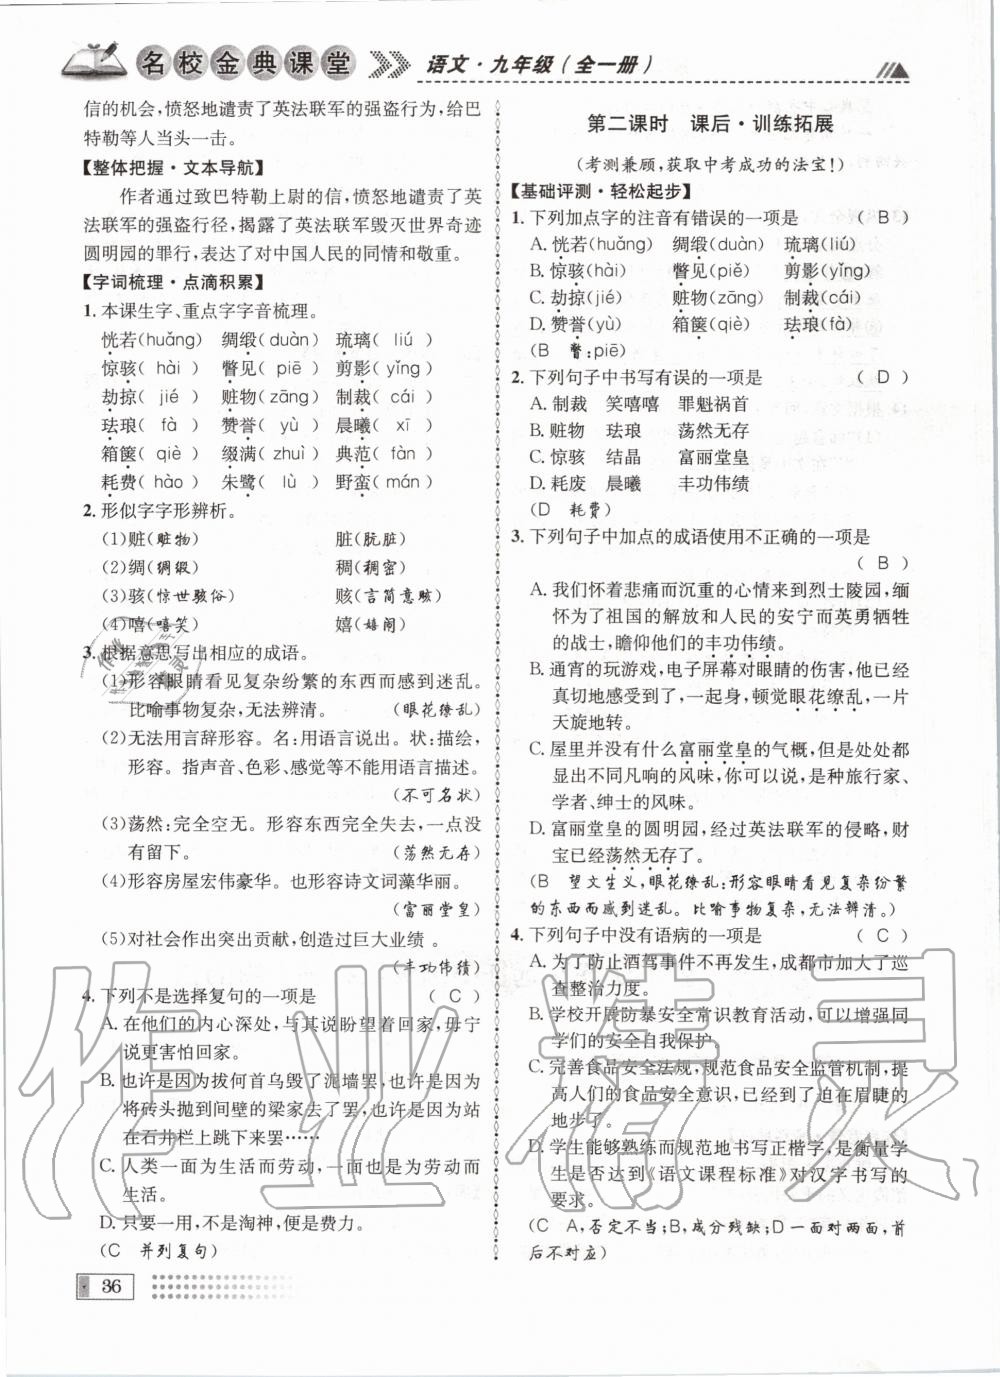 名校金典课堂 语文·九年级(全一册)
信的机会,愤怒地谴责了英法联军的强盗行为,给巴
特勒等人当头一击。
【整体把握·文本导航】
作者通过致巴特勒上尉的信,愤怒地谴责了英
法联军的强盗行径,揭露了英法联军毁灭世界奇迹
圆明园的罪行,表达了对中国人民的同情和敬重。
【字词梳理·点滴积累】
1.本课生字、重点字字音梳理。
恍若(huǎng) 绸缎(duàn) 琉璃(liú)
惊骇(hài) 瞥见(piē) 剪影(yǐng)
劫掠(jié) 赃物(zāng) 制裁(cái)
珐琅(fà) 赞誉(yù) 晨曦(xī)
箱箧(qiè) 缀满(zhuì) 典范(fàn)
耗费(hào) 朱鹭(lù) 野蛮(mán)
2.形似字字形辨析。
(1)赃(赃物) 脏(肮脏)
(2)绸(绸缎) 稠(稠密)
(3)骇(惊世骇俗) 赅(言简意赅)
(4)嘻(嘻笑) 嬉(嬉闹)
3.根据意思写出相应的成语。
(1)形容眼睛看见复杂纷繁的东西而感到迷乱。
比喻事物复杂,无法辨清。 (眼花缭乱)
(2)无法用言辞形容。名:用语言说出。状:描绘,
形容。指声音、色彩、感觉等不能用语言描述。
(不可名状)
(3)荡然:完全空无。形容东西完全失去,一点没
有留下。 (荡然无存)
(4)形容房屋宏伟豪华。也形容诗文词藻华丽。
(富丽堂皇)
(5)对社会作出突出贡献,创造过巨大业绩 。
(丰功伟绩)
4.下列不是选择复句的一项是 ( C )
A.在他们的内心深处,与其说盼望着回家,毋宁
说更害怕回家。
B.也许是因为拔何首乌毁了泥墙罢,也许是因为
将砖头抛到间壁的梁家去了罢,也许是因为站
在石井栏上跳下来罢……
C.人类一面为生活而劳动,一面也是为劳动而
生活。
D.只要一用,不是淘神,便是费力。
(C 并列复句)
36
第二课时 课后·训练拓展
(考测兼顾,获取中考成功的法宝!)
【基础评测·轻松起步】
1.下列加点字的注音有错误的一项是 ( B )
A.恍若(huǎng) 绸缎(duàn) 琉璃(liú)
B.惊骇(hài) 瞥见(piě) 剪影(yǐng)
C.劫掠(jié) 赃物(zāng) 制裁(cái)
D.赞誉(yù) 箱箧(qiè) 珐琅(fà)
(B 瞥:piē)
2.下列句子中书写有误的一项是 ( D )
A.制裁 笑嘻嘻 罪魁祸首
B.赃物 珐琅 荡然无存
C.惊骇 结晶 富丽堂皇
D.耗废 晨曦 丰功伟绩
(D 耗费)
3.下列句子中加点的成语使用不正确的一项是
( B )
A.我们怀着悲痛而沉重的心情来到烈士陵园,缅
怀为了祖国的解放和人民的安宁而英勇牺牲
的战士,瞻仰他们的丰功伟绩。
B.通宵的玩游戏,电子屏幕对眼睛的伤害,他已经
真切地感受到了,一起身,顿觉眼花缭乱,一片
天旋地转。
C.屋里并没有什么富丽堂皇的气概,但是处处都
显得不同凡响的风味,你可以说,是种旅行家、
学者、绅士的风味。
D.富丽堂皇的圆明园,经过英法联军的侵略,财
宝已经荡然无存了。
(B 望文生义,眼花缭乱:形容眼睛看见复杂纷繁
的东西而感到迷乱。比喻事物复杂,无法辨清。)
4.下列句子中没有语病的一项是 ( C )
A.为了防止酒驾事件不再发生,成都市加大了巡
查整治力度。
B.学校开展防暴安全常识教育活动,可以增强同
学们的安全自我保护。
C.完善食品安全法规,规范食品安全监管机制,提
高人们的食品安全意识,已经到了迫在眉睫的
地步了。
D.学生能够熟练而规范地书写正楷字,是衡量学
生是否达到《语文课程标准》对汉字书写的
要求。
(C A,否定不当;B,成分残缺;D 一面对两面,前
后不对应)
作业精灵